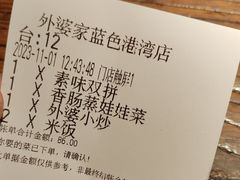 外婆家蓝色港湾店
台:12
2023-11-01 12:43:48 门店触屏1
1 X 素味双拼
1 X 香肠蒸娃娃菜
1 X 外婆小炒
2 X 米饭
账单合计金额:86.00
你要的菜已下单,请确认!
上单据金额仅供参考,非最终结账